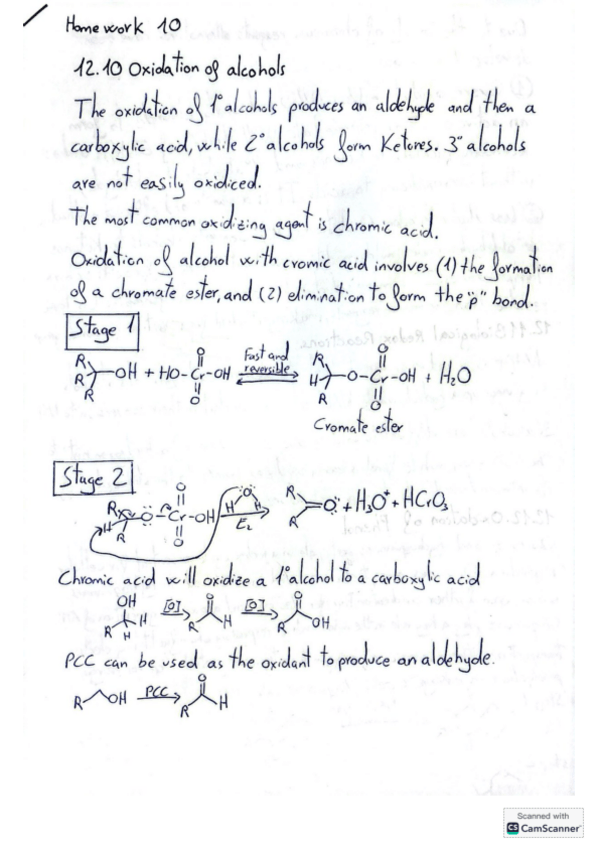 Homework 10
12.10 Oxidation of alcohols
The oxidation of 1° alcohols produces an aldehyde and then a
carboxylic acid, while 2° alcohols form Ketones. 3° alcohols
are not easily oxidiced.
The most common oxidizing agent is chromic acid.
Oxidation of alcohol with cromic acid involves (1) the formation
of a chromate ester, and (2) elimination to form the "p" bond.
Stage 1
R R R OH + HO-Cr-OH O O Fast and reversible R H R O-Cr-OH O O + H₂O
Cromate ester
Stage 2
R H R O-Cr-OH O O H O H E₂ R R =O + H₃O⁺ + HCrO₃
Chromic acid will oxidize a 1° alcohol to a carboxylic acid
OH R H H [O] O R H [O] O R OH
PCC can be used as the oxidant to produce an aldehyde.
R OH PCC O R H
Scanned with
CS CamScanner